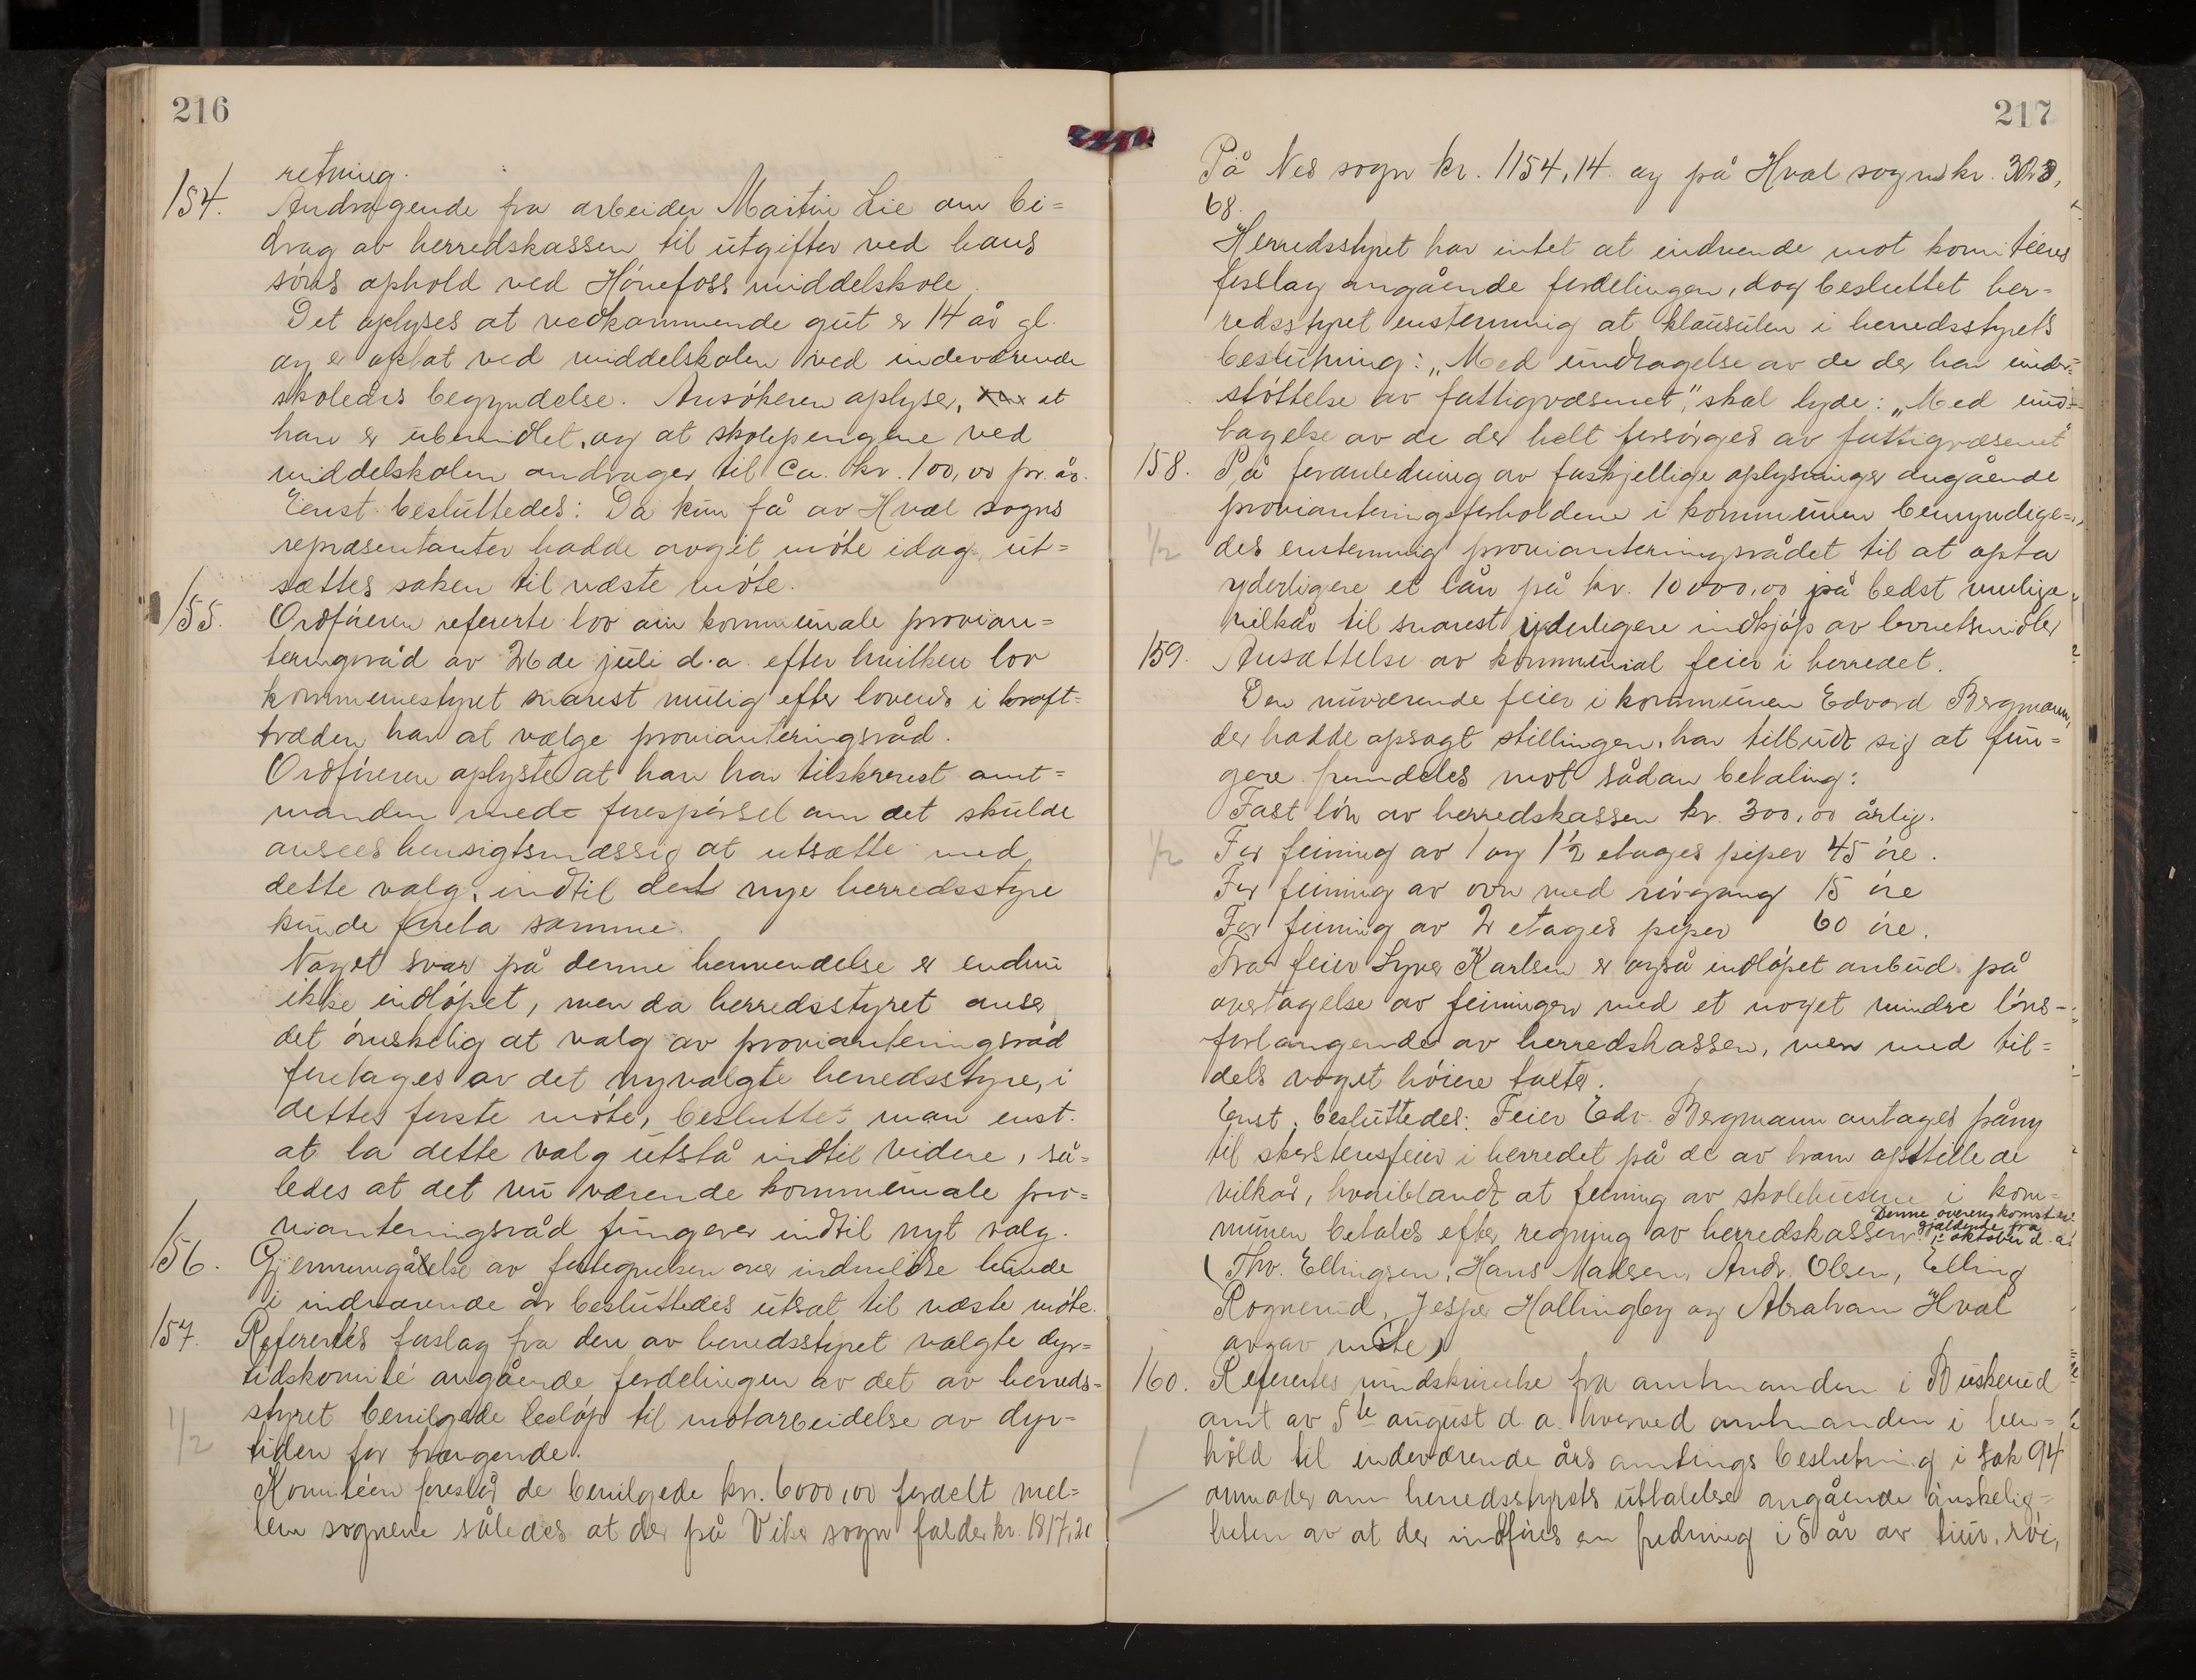 216
retning.
154. Andragende fra arbeider Martin Lie om bi=
drag av herredskassen til utgifter ved hans
søns ophold ved Hønefoss middelskole.
Det oplyses at vedkommende gut er 14 år gl.
og er optat ved middelskolen ved indeværende
skoleårs begyndelse. Ansøkeren oplyser, at
han er ubemidlet, og at skolepengene ved
middelskolen andrager til ca. kr. 100,00 pr. år.
Eenst. besluttedes: Da kun få av Hval sogns
repræsentanter hadde avgit møte idag, ut=
sættes saken til næste møte.
155. Ordføreren refererte lov om kommunale provian=
teringsråd av 26de juli d.a. efter hvilken lov
kommunestyret snarest mulig efter lovens i kraft=
træden har at vælge provianteringsråd.
Ordføreren oplyste at han har tilskrevet amt=
manden med forespørsel om det skulde
ansees hensigtsmæssig at utsætte med
dette valg, indtil det nye herredsstyre
kunde foreta samme.
Noget svar på denne henvendelse er endnu
ikke indløpet, men da herredsstyret anser
det ønskelig at valg av provianteringsråd
foretages av det nyvalgte herredsstyre, i
dettes første møte, besluttet man enst.
at la dette valg utstå indtil videre, så=
ledes at det nu værende kommunale pro=
vianteringsråd fungerer indtil nyt valg.
156. Gjennemgåelse av fortegnelsen over indmeldte hunde
i indværende år besluttedes utsat til næste møte.
157. Refererte's forslag fra den av herredsstyret valgte dyr=
tidskomité angående fordelingen av det av herreds=
styret bevilgede beløp til motarbeidelse av dyr=
1/2
tiden for trængende.
Komitéen foreslår de bevilgede kr. 6000,00 fordelt mel=
lem sognene således at der på Viker sogn falder kr. 1817,20
217
På Nes sogn kr. 1154,14 og på Hval sogn kr. 3028,
68.
Herredsstyret har intet at indvende mot komitéens
forslag angående fordelingen, dog besluttet her=
redsstyret enstemmig at klausulen i herredsstyrets
beslutning: „Med undtagelse av de der har under=
støttelse av fattigvæsenet", skal lyde: „Med und=
tagelse av de der helt forsørges av fattigvæsenet"
158. På foranledning av forskjellige oplysninger angående
provianteringsforholdene i kommunen bemyndige=
1/2 des enstemmig provianteringsrådet til at opta
yderligere et lån på kr. 10000,00 på bedst mulige
vilkår til snarest yderligere indkjøp av levnetsmidler
159. Ansættelse av kommunal feier i herredet.
Den nuværende feier i kommunen Edvard Bergmann,
der hadde opsagt stillingen, har tilbudt sig at fun=
gere fremdeles mot sådan betaling:
Fast løn av herredskassen kr. 300,00 årlig.
1/2 For feining av 1 og 1 1/2 etages piper 45 øre.
For feining av ovn med rørgang 15 øre
For feining av 2 etages piper 60 øre.
Fra feier Syver Karlsen er også indløpet anbud på
overtagelse av feiningen med et noget mindre løns=
forlangende av herredskassen, men med til=
dels noget høiere takster.
Enst. besluttedes: Feier Edv. Bergmann antages påny
til skorstensfeier i herredet på de av ham opstillede
vilkår, hvoriblandt at feining av skolehusene i kom=
munen betales efter regning av herredskassen. Denne overenskomst er
gjældende fra
1. oktober d.a.
(Thv. Ellingsen, Hans Madsen, Andr. Olsen, Elling
Rognerud, Jesper Hallingby og Abraham Hval
avgav møte)
160. Refererte's rundskrivelse fra amtmanden i Buskerud
amt av 5te august d.a. hvorved amtmanden i hen=
hold til indeværende års amtings beslutning i sak 94
anmoder om herredsstyrets uttalelse angående ønskelig=
heten av at der indføres en fredning i 5 år av tiur, røi,